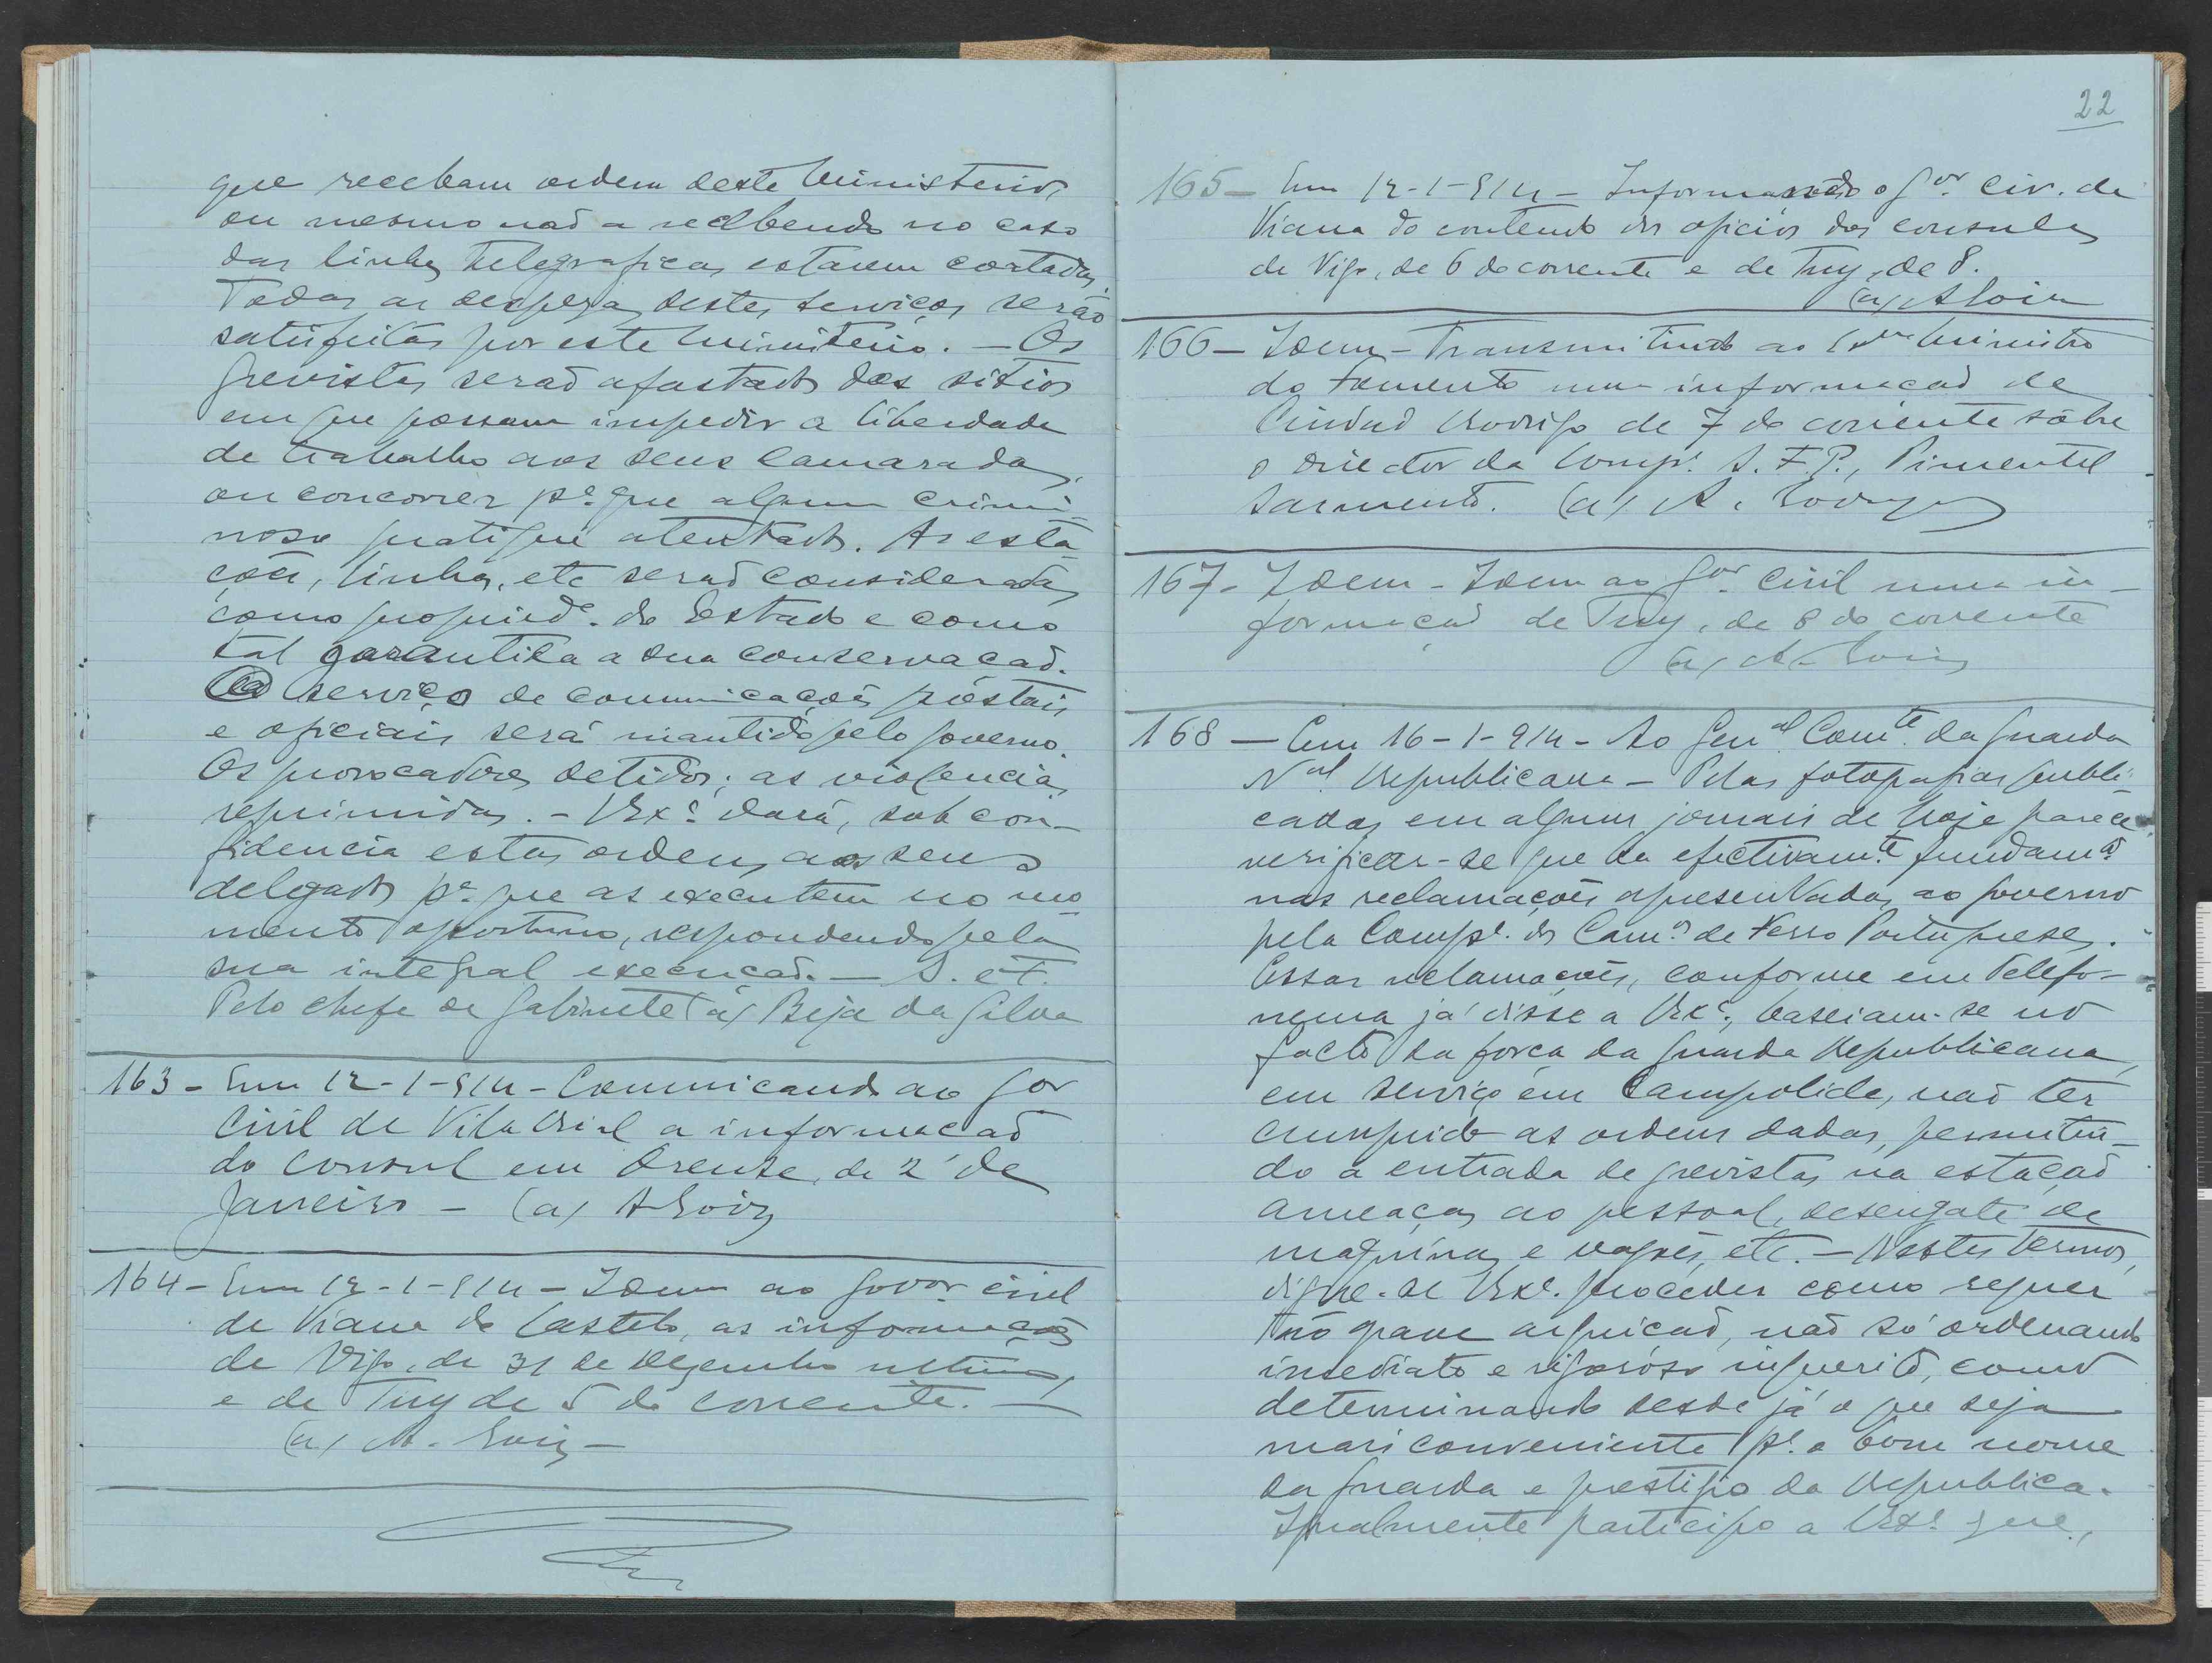 que recebam ordem deste Ministerio,
ou mesmo naõ a recebendo no caso
das linhas telegraficas estarem cortadas.
Todas as despezas destes serviços serão
satisfeitas por este Ministerio. — Os
grevistas seraõ afastados dos sitios
em que possam impedir a liberdade
de trabalho aos seus camaradas,
ou concorrer pª. que algum crimi-
noso pratique atentados. As esta-
ções, linhas, etc seraõ consideradas
como propriedᵉ. do Estado e como
tal garantida a sua conservacaõ.
O serviço de comunicações póstais
e oficiais será mantido pelo governo.
Os provocadores detidos; as violencias
reprimidas. - VExª. dará, sob con-
fidencia estas ordens, aos seus
delegados pª. que as executem no mo-
mento oportuno, respondendo pela
sua integral execucaõ. — S. e F.
Pelo chefe de Gabinete (a) Beja da Silva
163 - Em 12-1-914 - Comunicando ao Gor
Civil de Vila Rial a informacaõ
do consul em Orense, de 2 de
Janeiro - (a) A. Goiz
164 - Em 12-1-914 - Idem ao Govor civil
de Viana do Castelo, as informações
de Vigo, de 31 de Dezembro ultimo,
e de Tuy de 5 do corrente. —
(a) A. Goiz -
22
165 - Em 12-1-914 - Informando o Gor. Civ. de
Viana do contendo dos oficios dos consules
de Vigo, de 6 do corrente e de Tuy, de 8.
(a) A Goiz
166 - Idem - Transmitindo ao Exmo Ministro
do Fomento uma informacaõ de
Ciudad Rodrigo de 7 do corrente sobre
o director da Compª. S. F. P., Pimentel
Sarmento. (a) A.
167 - Idem - Idem ao Gor. Civil uma in-
formacaõ de Tuy, de 8 do corrente
(a) A. Goiz
168 — Em 16-1-914 - Ao Genal. Comte. da Guarda
Nal. Republicana - Pelas fotografias publi-
cadas em alguns jornais de hoje parece
verificar-se que ha efectivamte. fundamto.
nas reclamações apresentadas ao governo
pela Compª. dos Camos. de Ferro Portugueses.
Essas reclamações, conforme em telefo-
nema já disse a VExª., baseiam-se no
facto da força da Guarda Republicana,
em serviço em Campolide, naõ ter
cumprido as ordens dadas, permitin-
do a entrada de grevistas na estaçaõ
ameaças ao pessoal, desengate de
maquinas e vagões, etc. — Nestes termos,
digne-se VExª. proceder como requer
taõ grave arguicaõ, naõ só ordenando
imediato e rigoróso inquerito, como
determinando desde já o que seja
mais conveniente pª. o bom nome
da Guarda e prestigio da Republica.
Igualmente participo a VExª. que,